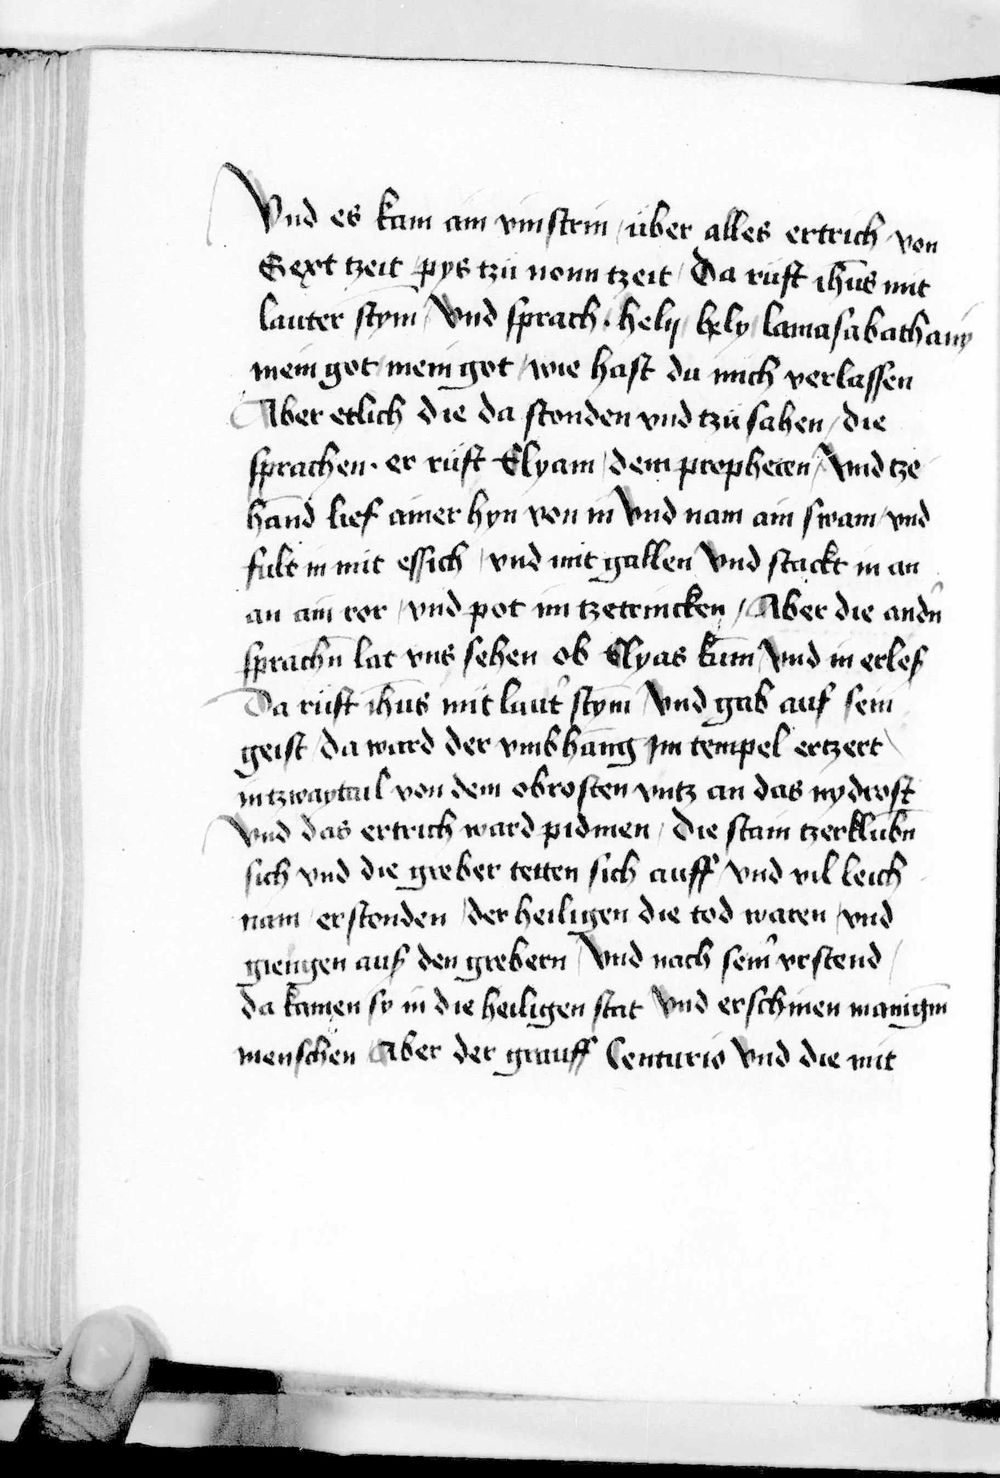 Vnd es kam ain vinstrin / über alles ertrich von
Sext tzeit / pys tzü nonn tzeit / Da rüft ih̄us mit
lauter stym̄ / Vnd sprach · helij / hely / lamasabathany
mein got / mein got / wie hast du mich verlassen
Aber etlich die da stonden vnd tzü sahen / die
sprachen · er rüft Elyam / dem propheten / Vnd tze
hand lief ainer hyn von in Vnd nam ain swam / vnd
fült in mit essich / vnd mit gallen Vnd stackt in an
an ain ror / vnd pot im tzetrincken / Aber die andn̄
sprachn̄ lat vns sehen ob Elyas kum̄ / Vnd in erless
Da rüft ih̄us mit laut̄ stym̄ / Vnd gab auf sein
geist / da ward der vmbhang im tempel ertzert
in tzway tail von dem obrosten vntz an das nydrost
Vnd das ertrich ward pidmen / die stain tzerklubn̄
sich vnd die greber tetten sich auff / vnd vil leich
nam / erstonden / der heiligen die tod waren / vnd
giengen auss den grebern / Vnd nach sein̄ vrstend /
da kamen sy in die heiligen stat Vnd erschinen manigm̄
menschen Aber der grauff Centurio Vnd die mit